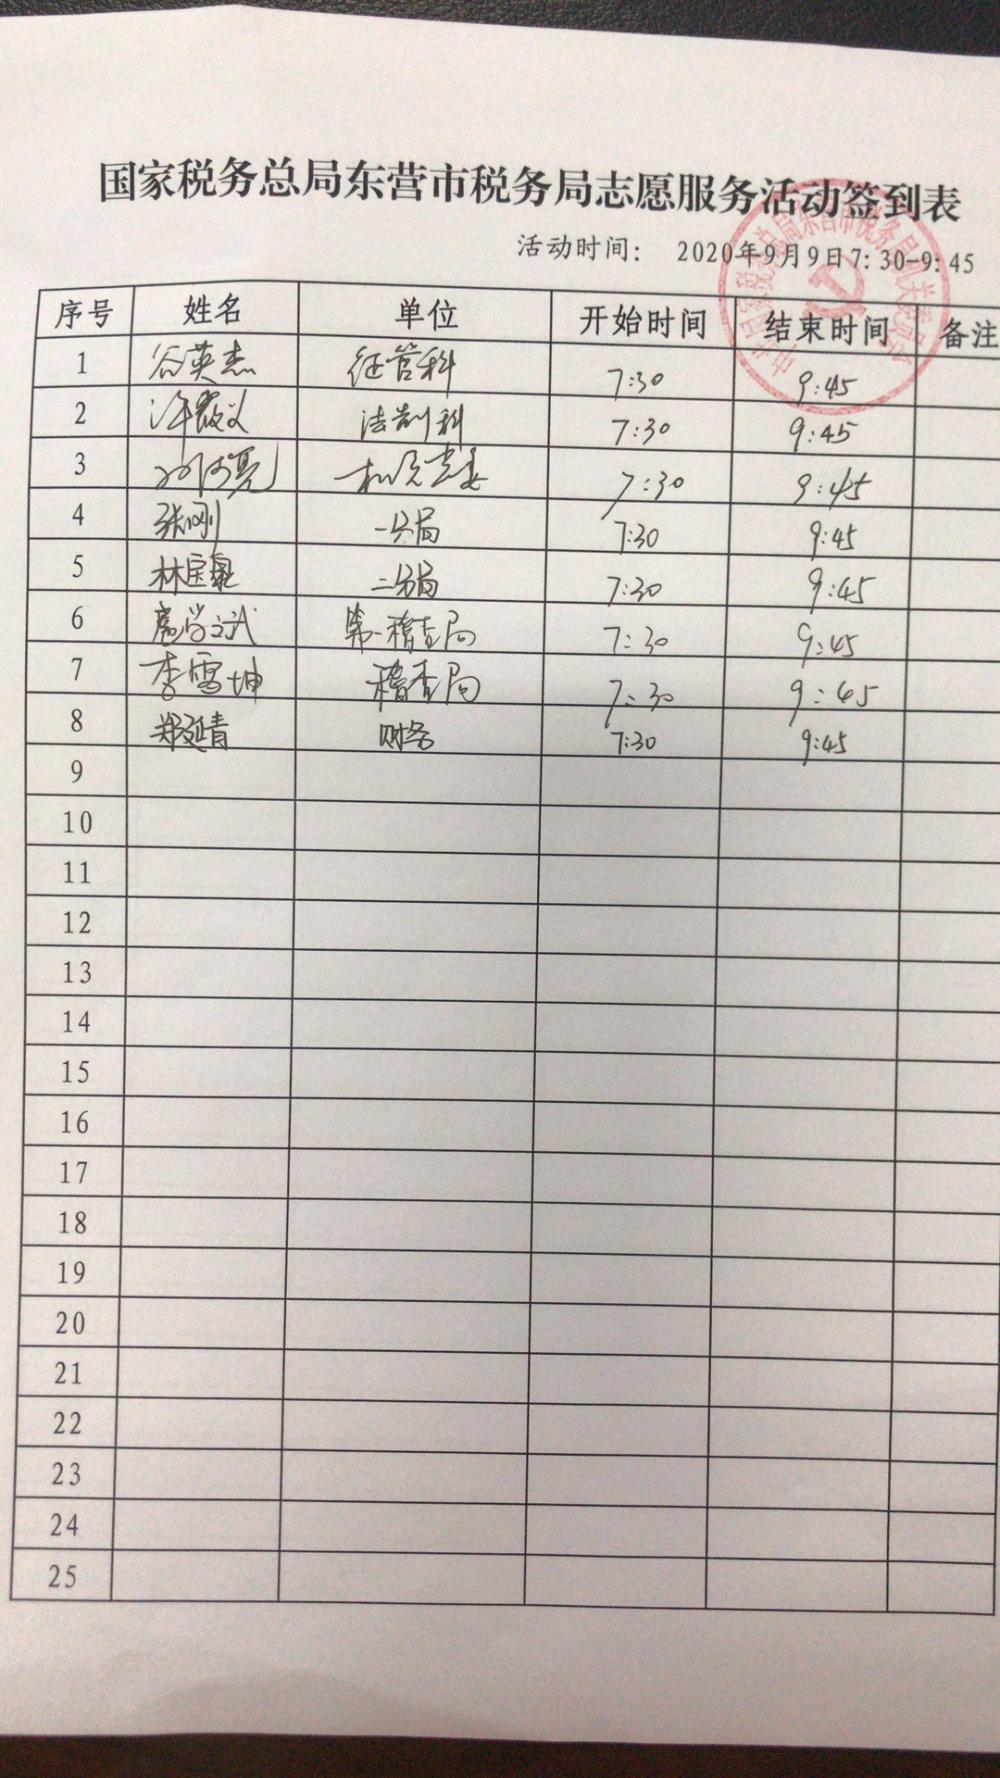 国家税务总局东营市税务局志愿服务活动签到表
活动时间： 2020年9月9日7:30-9:45
序号 姓名 单位 开始时间 结束时间 备注
1 谷英杰 征管科 7:30 9:45
2 法制科 7:30 9:45
3 机关党委 7:30 9:45
4 张刚 一分局 7:30 9:45
5 林宝泉 二分局 7:30 9:45
6 第一稽查局 7:30 9:45
7 李雪坤 稽查局 7:30 9:45
8 郑延青 财务 7:30 9:45
9
10
11
12
13
14
15
16
17
18
19
20
21
22
23
24
25